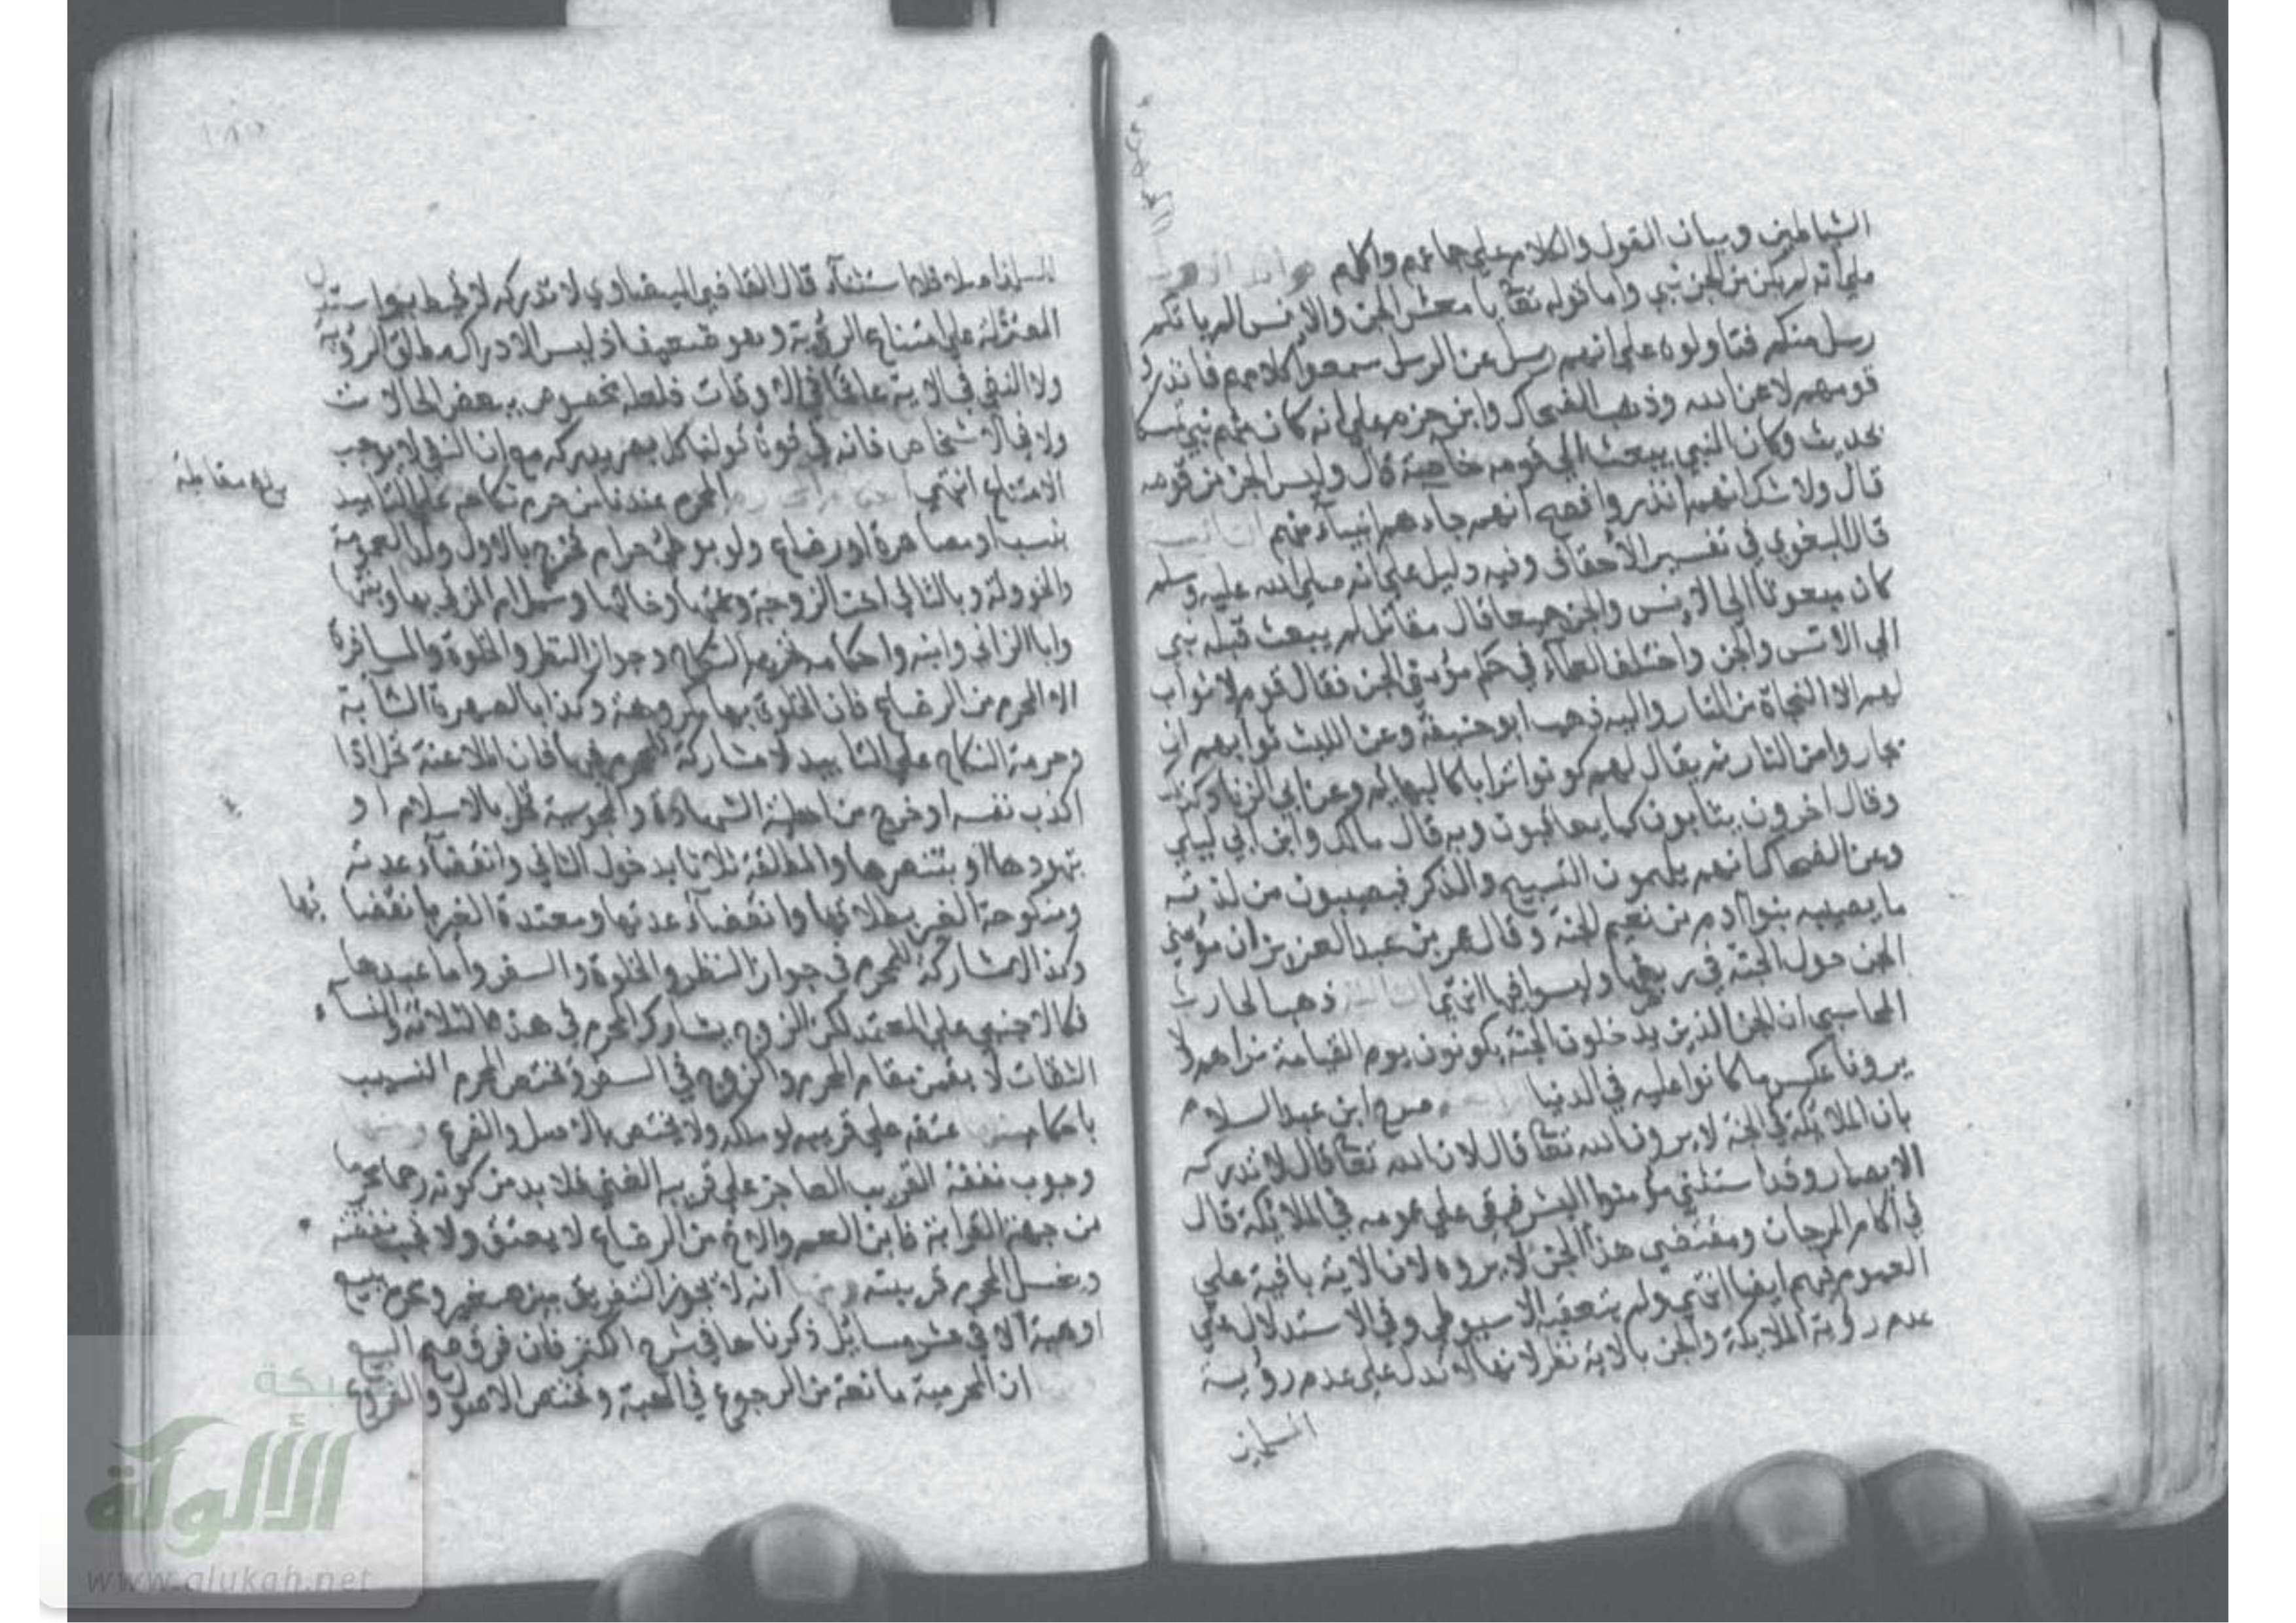 الشياطين وبيان القول والكلام على جماعهم واكلهم
على انه لم يكن من الجن نبي واما قوله تعا يا معشر الجن والانس الم ياتكم
رسل منكم فتاولوه على انهم رسل عن الرسل سمعوا كلامهم فانذروا
قومهم لا عن الله وذهب الضحاك وابن حزم على انه كان منهم نبي تمسكا
بحديث وكان النبي يبعث الى قومه خاصة قال وليس الجن من قومه
قال ولا شك انهم انذروا فصح انهم جاءهم انبياء منهم
قال البغوي في تفسير الاحقاف وفيه دليل على انه صلى الله عليه وسلم
كان مبعوثا الى الانس والجن جميعا قال مقاتل لم يبعث قبله نبي
الى الانس والجن واختلف العلماء في حكم مؤمني الجن فقال قوم لا ثواب
لهم الا النجاة من النار واليه ذهب ابو حنيفة وعن الليث ثوابهم ان
يجاروا من النار ثم يقال لهم كونوا ترابا كالبهايم وعن ابي الزناد كذلك
وقال اخرون يثابون كما يعاقبون وبه قال مالك وابن ابي ليلى
وعن الضحاك انهم يلهمون التسبيح والذكر فيصيبون من لذته
ما يصيبه بنوا ادم من نعيم الجنة وقال عمر بن عبد العزيز ان مؤمني
الجن حول الجنة في ربض وليسوا فيها انتهى الثالثة ذهب الحارث
المحاسبي ان الجن الذين يدخلون الجنة يكونون يوم القيامة نراهم ولا
يرونا عكس ما كانوا عليه في الدنيا صرح ابن عبد السلام
بان الملائكة في الجنة لا يرون الله تعا قال لان الله تعا قال لا تدركه
الابصار وقد استثني مؤمنوا البشر فبقي على عمومه في الملائكة قال
في اكام المرجان ومقتضى هذا الجن لا يروه لان الاية باقية على
العموم فيهم ايضا انتهى ولم يتعقبه الاسيوطي وفي الاستدلال على
عدم رؤية الملايكة والجن بالاية نظر لانها لا تدل على عدم رؤية
المسلمين
المسلمين اصلا فلا استثناء قال القاضي البيضاوي لا تدركه لا تحيط به واستدل
المعتزلة على امتناع الرؤية وهو ضعيف اذ ليس الادراك مطلق الرؤية
ولا النفي في الاية عاما في الاوقات فلعله مخصوص ببعض الحالات
ولا في الاشخاص فانه في قوة قولنا كل بصر يدركه مع ان النفي لا يوجب
الامتناع انتهى المحرم عندنا من حرم نكاحه على التابيد
بلغ مقابلة
بنسب او مصاهرة او رضاع ولو بوطئ حرام فخرج بالاول ولد العمومة
والخوولة وبالثاني اخت الزوجة وعمتها وخالتها وشمل ام المزني بها وبنتها
وابا الزاني وابنه واحكامه تحريم النكاح وجواز النظر والخلوة والمسافرة
الا المحرم من الرضاع فان الخلوة بها مكروهة وكذا بالصهرة الشابة
وحرمة النكاح على التابيد لا مشاركة للمحرم فيها فان الملاعنة تحل اذا
اكذب نفسه او خرج من اهلية الشهادة والمجوسية تحل بالاسلام او
بتهودها او بتنصرها والمطلقة ثلاثا بدخول الثاني وانقضاء عدته
ومنكوحة الغير بطلاقها وانقضاء عدتها ومعتدة الغير بانقضا
ئها
وكذا لا مشاركة للمحرم في جواز النظر والخلوة والسفر واما عبدها
فكالاجنبي على المعتمد لكن الزوج يشارك المحرم في هذه الثلاثة والنساء
الثقات لا يقمن مقام المحرم والزوج في السفر وتختص المحرم النسيب
باحكام منها عتقه على قريبه لو ملكه ولا يختص بالاصل والفرع ومنها
وجوب نفقة القريب العاجز على قريبه الغني فلا بد من كونه رحما محرما
من جهة القرابة فابن العم والاخ من الرضاع لا يعتق ولا تجب نفقته
ويغسل المحرم قريبته ومنها انه لا يجوز التفريق بين صغير ومحرم ببيع
او هبة الا في عشر مسائل ذكرناها في شرح الكنز فان فرق صح البيع
ان المحرمية مانعة من الرجوع في الهبة وتختص الاصول والفروع
شبكة
الألوكة
www.alukah.net